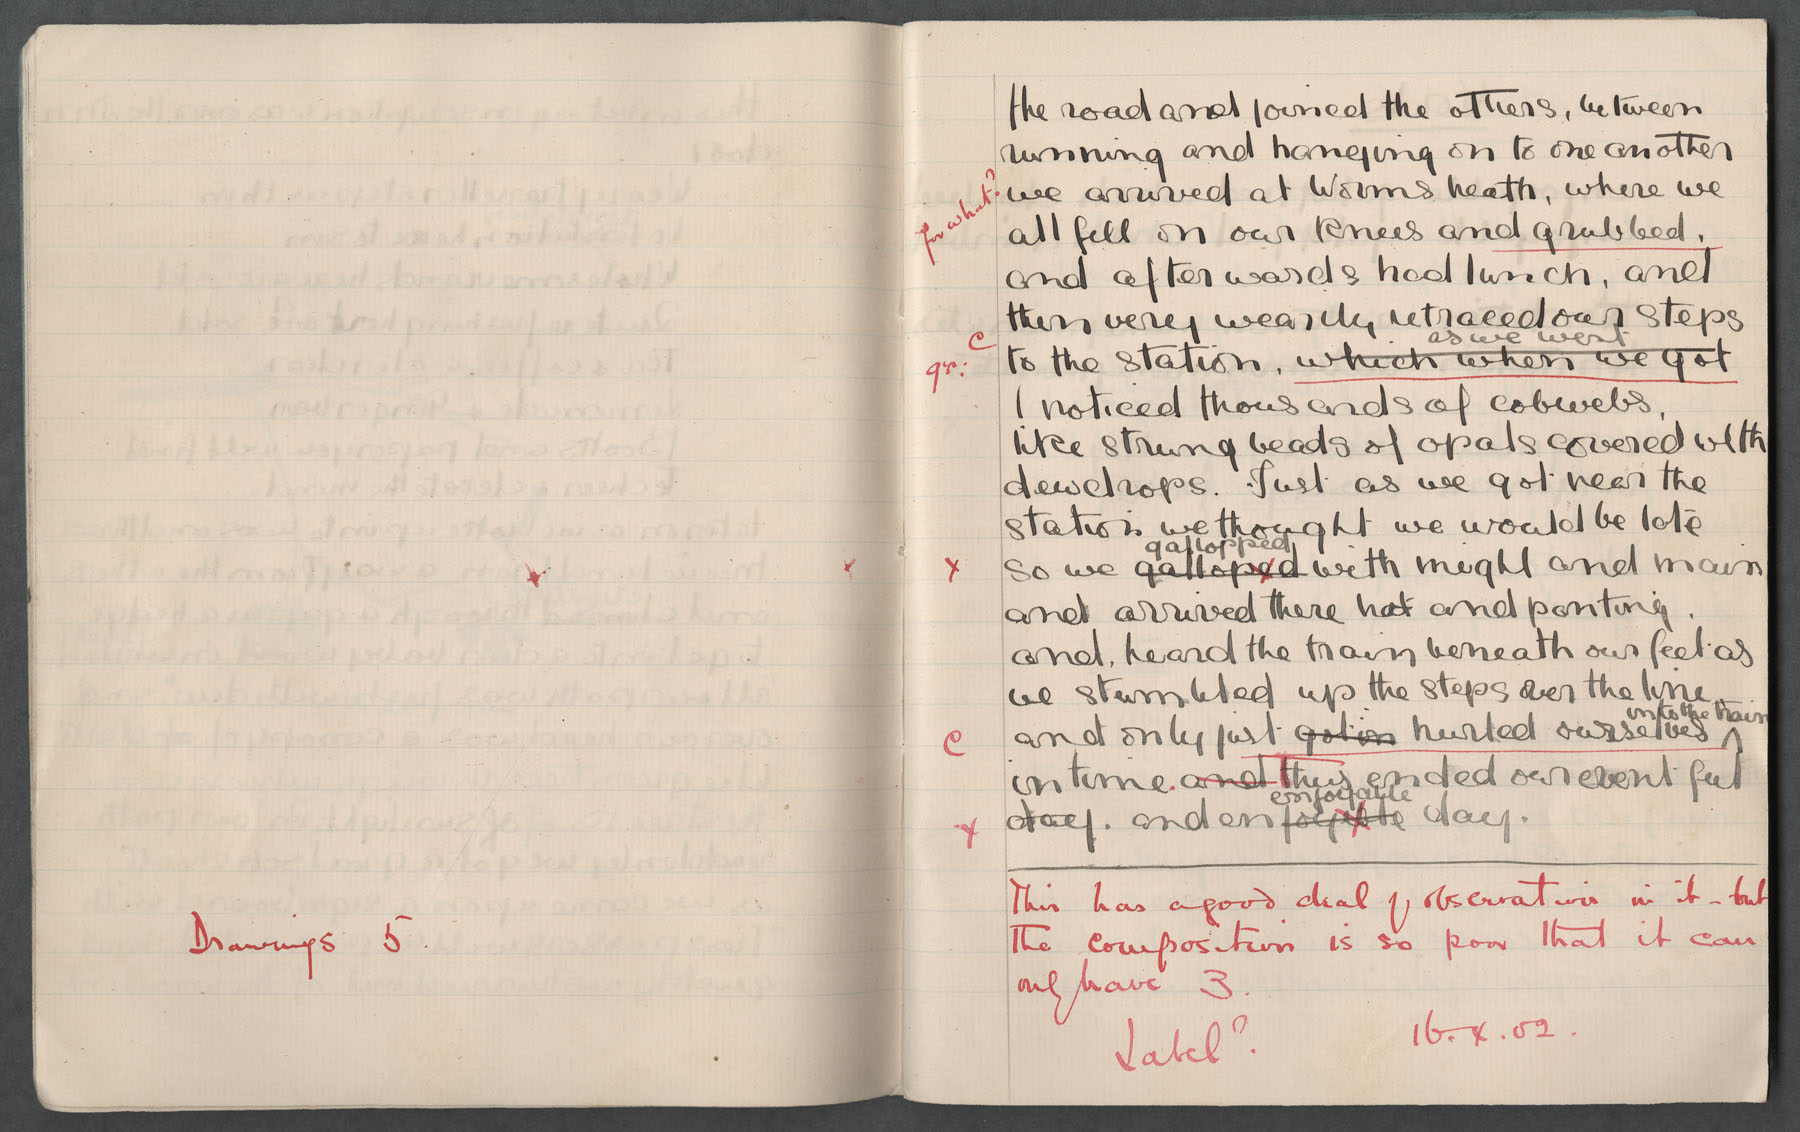 Drawings 5.
the road and joined the others, between
running and hanging on to one another
for what?
we arrived at Worms heath, where we
all fell on our knees and grubbed,
and afterwards had lunch, and
then very wearily retraced our steps
as we went
c
gr:
to the station, which when we got
I noticed thousands of cobwebs,
like strung beads of opals covered with
dewdrops. Just as we got near the
station we thought we would be late
gallopped
x
so we galloped with might and main
and arrived there hot and panting,
and, heard the train beneath our feet as
we stumbled up the steps over the line,
into the train
c
and only just got in hurled ourselves ^
in time. and thus ended our eventful
enjoyable
x
day. and enjoyible day.
This has a good deal of observation in it - but
the composition is so poor that it can
only have 3.
Label?
16.x.02.